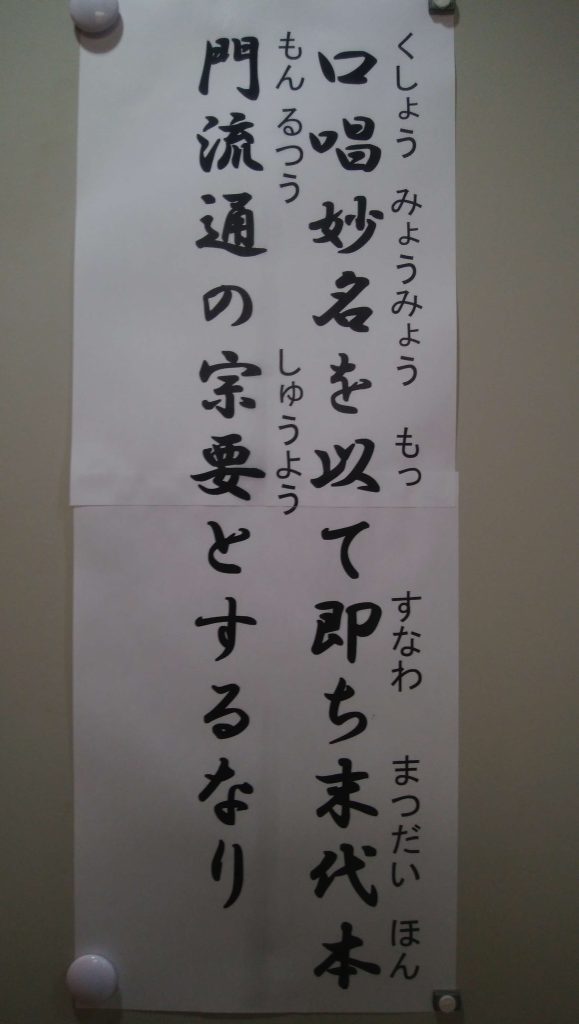 くしょう みょうみょう もっ すなわ まつだい ほん
口唱妙名を以て即ち末代本
もん るつう しゅうよう
門流通の宗要とするなり